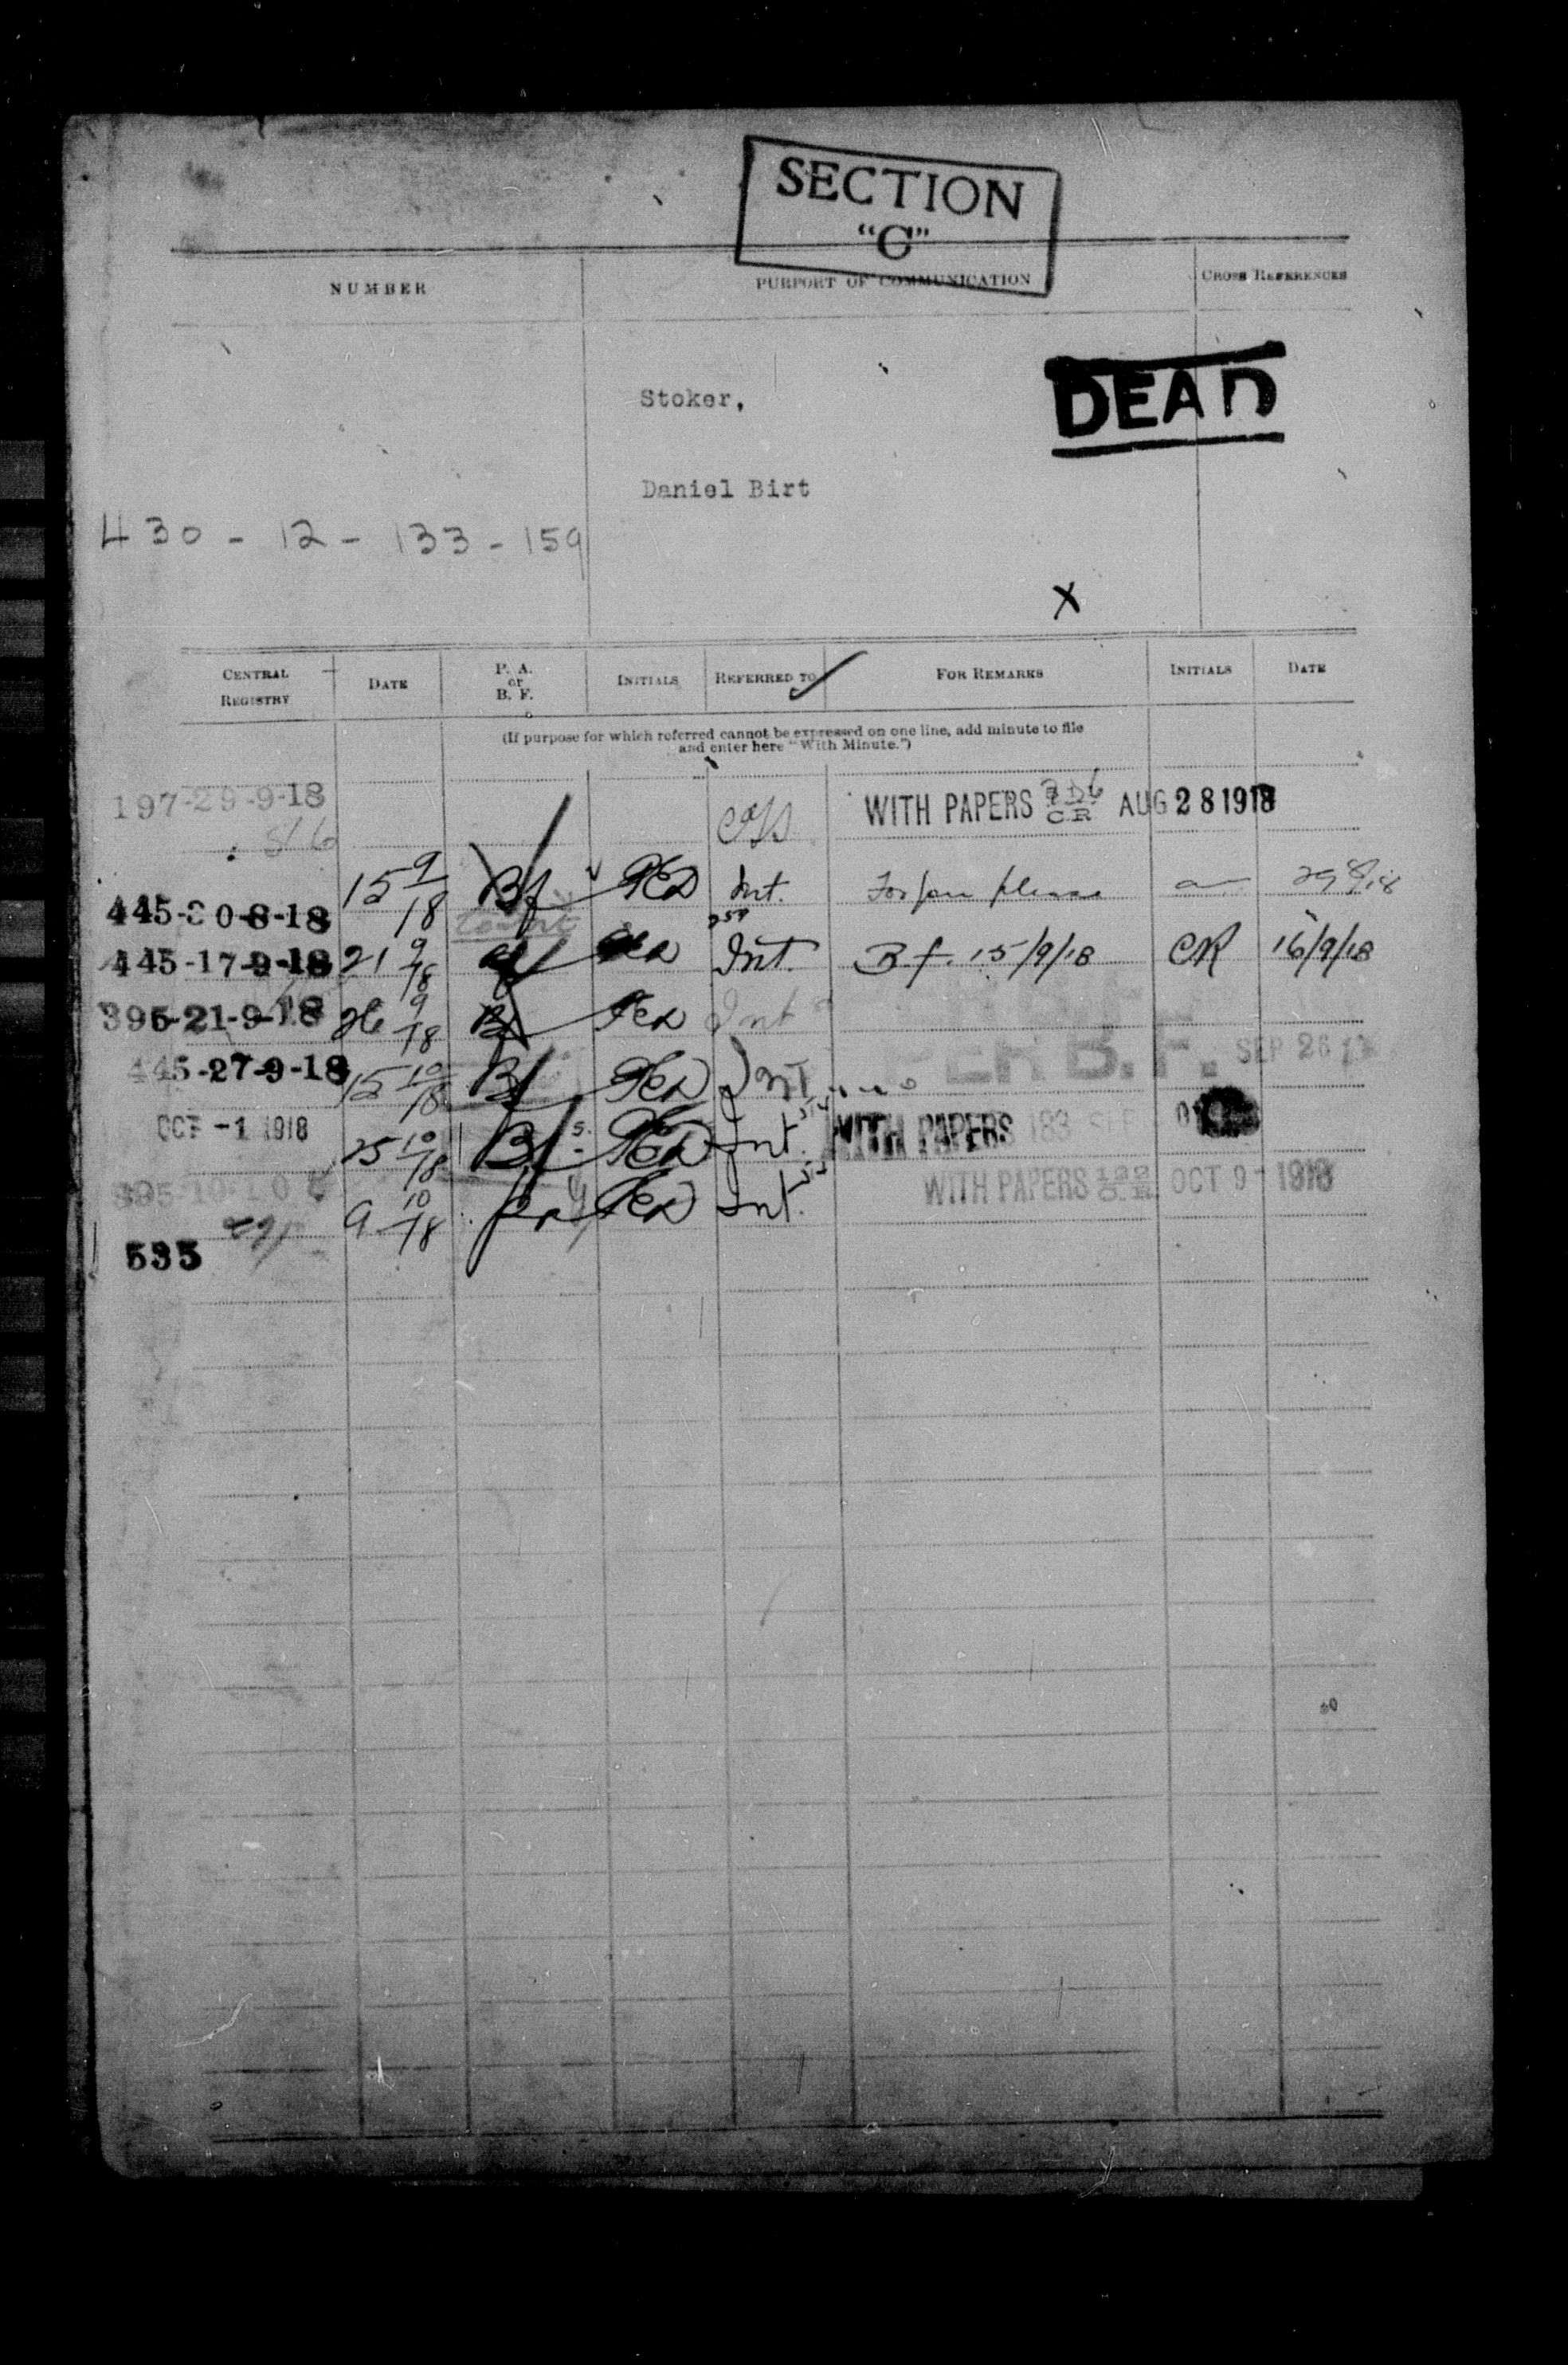 SECTION
"C"
NUMBER PURPORT OF COMMUNICATION CROSS REFERENCES
DEAD
Stoker,
Daniel Birt
430 - 12 - 133 - 159
X
CENTRAL REGISTRY DATE P. A. or B. F. INITIALS REFERRED TO FOR REMARKS INITIALS DATE
(If purpose for which referred cannot be expressed on one line, add minute to file
and enter here "With Minute.")
197-29-9-18 WITH PAPERS CR AUG 28 1918
445-30-8-18 15 9/18 Bf Int. please 29 8/18
445-17-9-18 21 9/18 Int. B.f. 15/9/18 CR 16/9/18
395-21-9-18 26 9/18 Int B.F. SEP 26
445-27-9-18 15 10/18 Bf Int
OCT -1 1918 25 10/18 Bf Int. WITH PAPERS 183
9 10/18 Int. WITH PAPERS OCT 9 - 1918
535